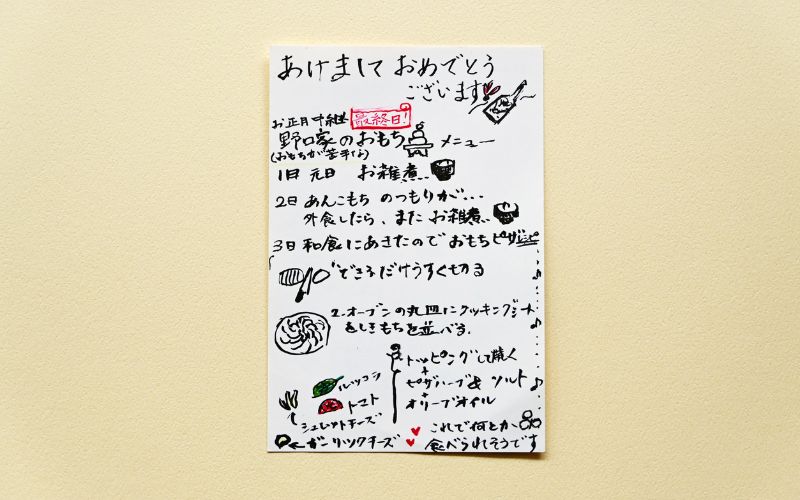 あけまして おめでとう
ございます
お正月中継 最終日!
野口家のおもち メニュー
(おもちが苦手な)
1日 元日 お雑煮..
2日 あんこもち のつもりが...
外食したら、また お雑煮..
3日 和食にあきたので おもちピザレシピ
できるだけうすく切る
2.オーブンの丸皿にクッキングシート
をしきもちを並べる。
トッピングして焼く
+
ピザハーブ& ソルト
+
オリーブオイル
ルッコラ
トマト
シュレットチーズ
←ガーリックチーズ
これで何とか
食べられそうです